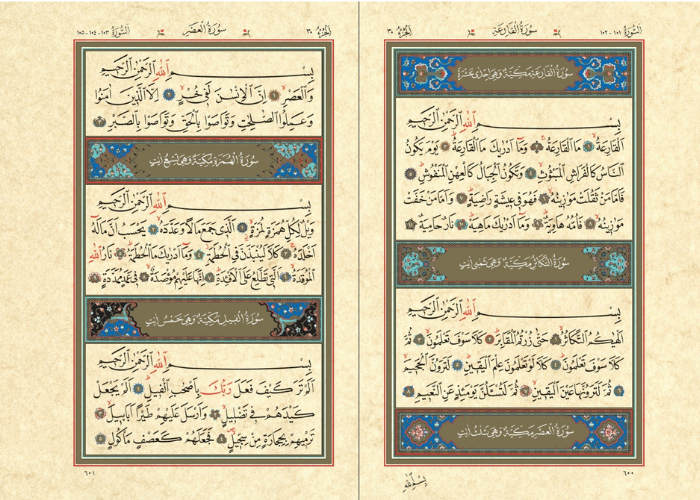 الجزء ٣٠
سورة القارعة
السورة ١٠١-١٠٢
سورة القارعة مكية وهي احدى عشرة
بسم الله الرحمن الرحيم
القارعة ما القارعة وما ادريك ما القارعة يوم يكون
الناس كالفراش المبثوث وتكون الجبال كالعهن المنفوش
فاما من ثقلت موازينه فهو في عيشة راضية واما من خفت
موازينه فامه هاوية وما ادريك ماهيه نار حامية
سورة التكاثر مكية وهي ثمان ايات
بسم الله الرحمن الرحيم
الهيكم التكاثر حتى زرتم المقابر كلا سوف تعلمون ثم
كلا سوف تعلمون كلا لو تعلمون علم اليقين لترون الجحيم
ثم لترونها عين اليقين ثم لتسئلن يومئذ عن النعيم
سورة العصر مكية وهي ثلث ايات
٦٠٠
الجزء ٣٠
سورة العصر
السورة ١٠٣-١٠٤-١٠٥
بسم الله الرحمن الرحيم
والعصر ان الانسن لفي خسر الا الذين امنوا
وعملوا الصلحت وتواصوا بالحق وتواصوا بالصبر
سورة الهمزة مكية وهي تسع ايات
بسم الله الرحمن الرحيم
ويل لكل همزة لمزة الذي جمع مالا وعدده يحسب ان ماله
اخلده كلا لينبذن في الحطمة وما ادريك ما الحطمة نار الله
الموقدة التي تطلع على الافئدة انها عليهم مؤصدة في عمد ممددة
سورة الفيل مكية وهي خمس ايات
بسم الله الرحمن الرحيم
الم تر كيف فعل ربك باصحب الفيل الم يجعل
كيدهم في تضليل وارسل عليهم طيرا ابابيل
ترميهم بحجارة من سجيل فجعلهم كعصف ماكول
٦٠١